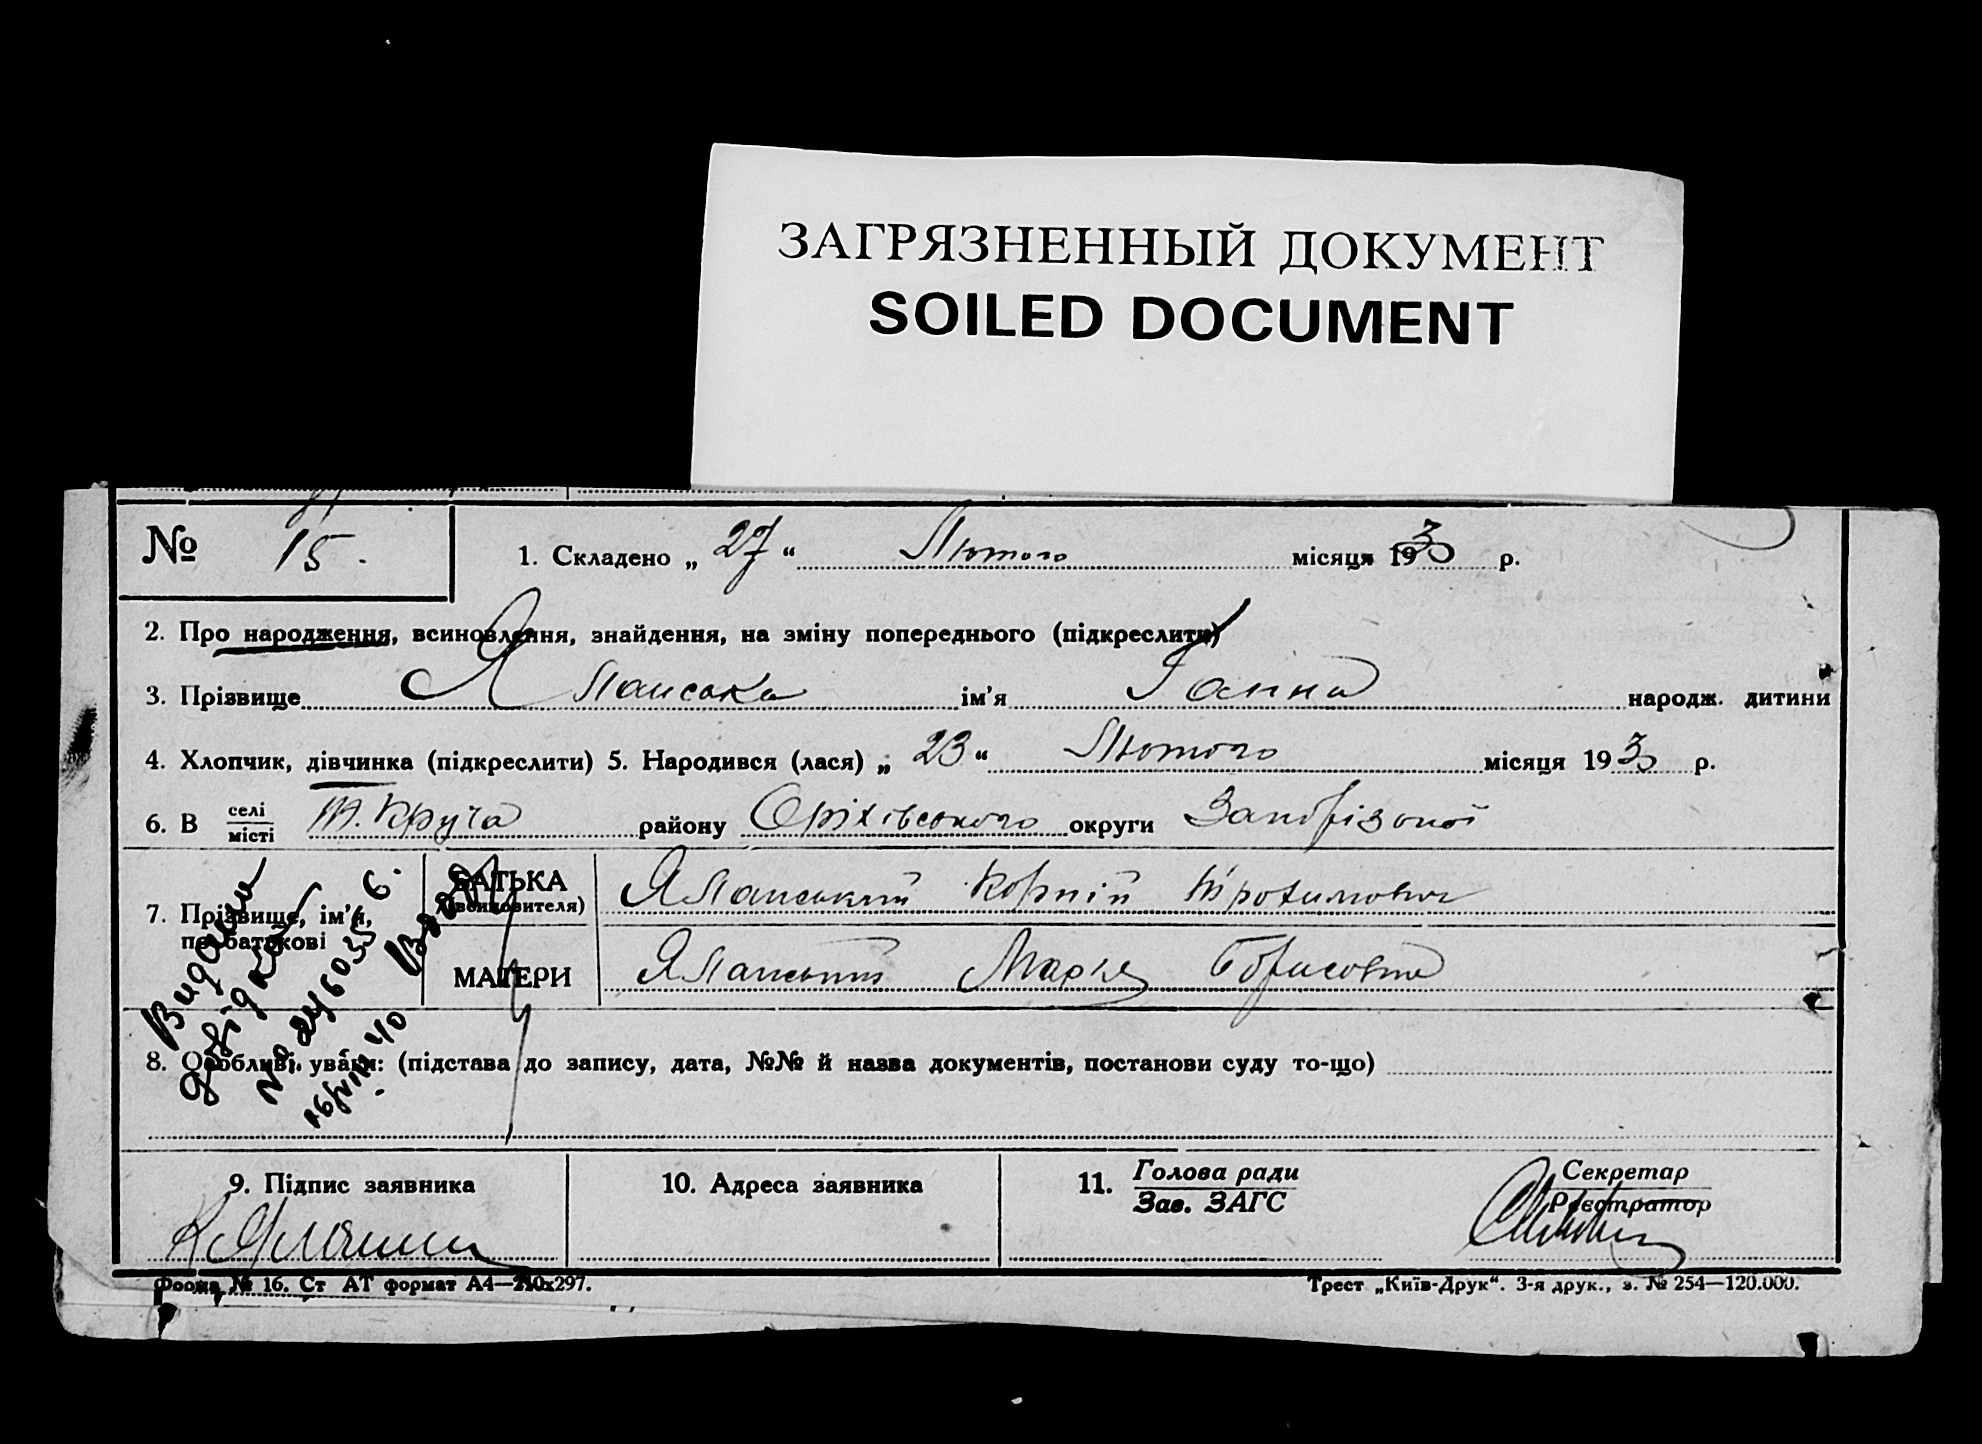 ЗАГРЯЗНЕННЫЙ ДОКУМЕНТ
SOILED DOCUMENT
№ 15. 1. Складено „ 27 “ Лютого місяця 1930 р.
2. Про народження, всиновлення, знайдення, на зміну попереднього (підкреслити)
3. Прізвище Яланська ім'я Ганна народж. дитини
4. Хлопчик, дівчинка (підкреслити) 5. Народився (лася) „ 23 “ Лютого місяця 1930 р.
6. В селі місті Круча району Оріхівського округи Запорізької
7. Прізвище, ім'я, по батькові
БАТЬКА (всиновителя) Яланський Корній Трохимович
МАТЕРИ Марія Борисовна
Видано
довідка
8. Особливі уваги: (підстава до запису, дата, №№ й назва документів, постанови суду то-що)
9. Підпис заявника 10. Адреса заявника 11. Голова ради Зав. ЗАГС Секретар Реєстратор
Форма № 16. Ст АТ формат А4—210х297. Трест „Київ-Друк“. 3-я друк., з. № 254—120.000.